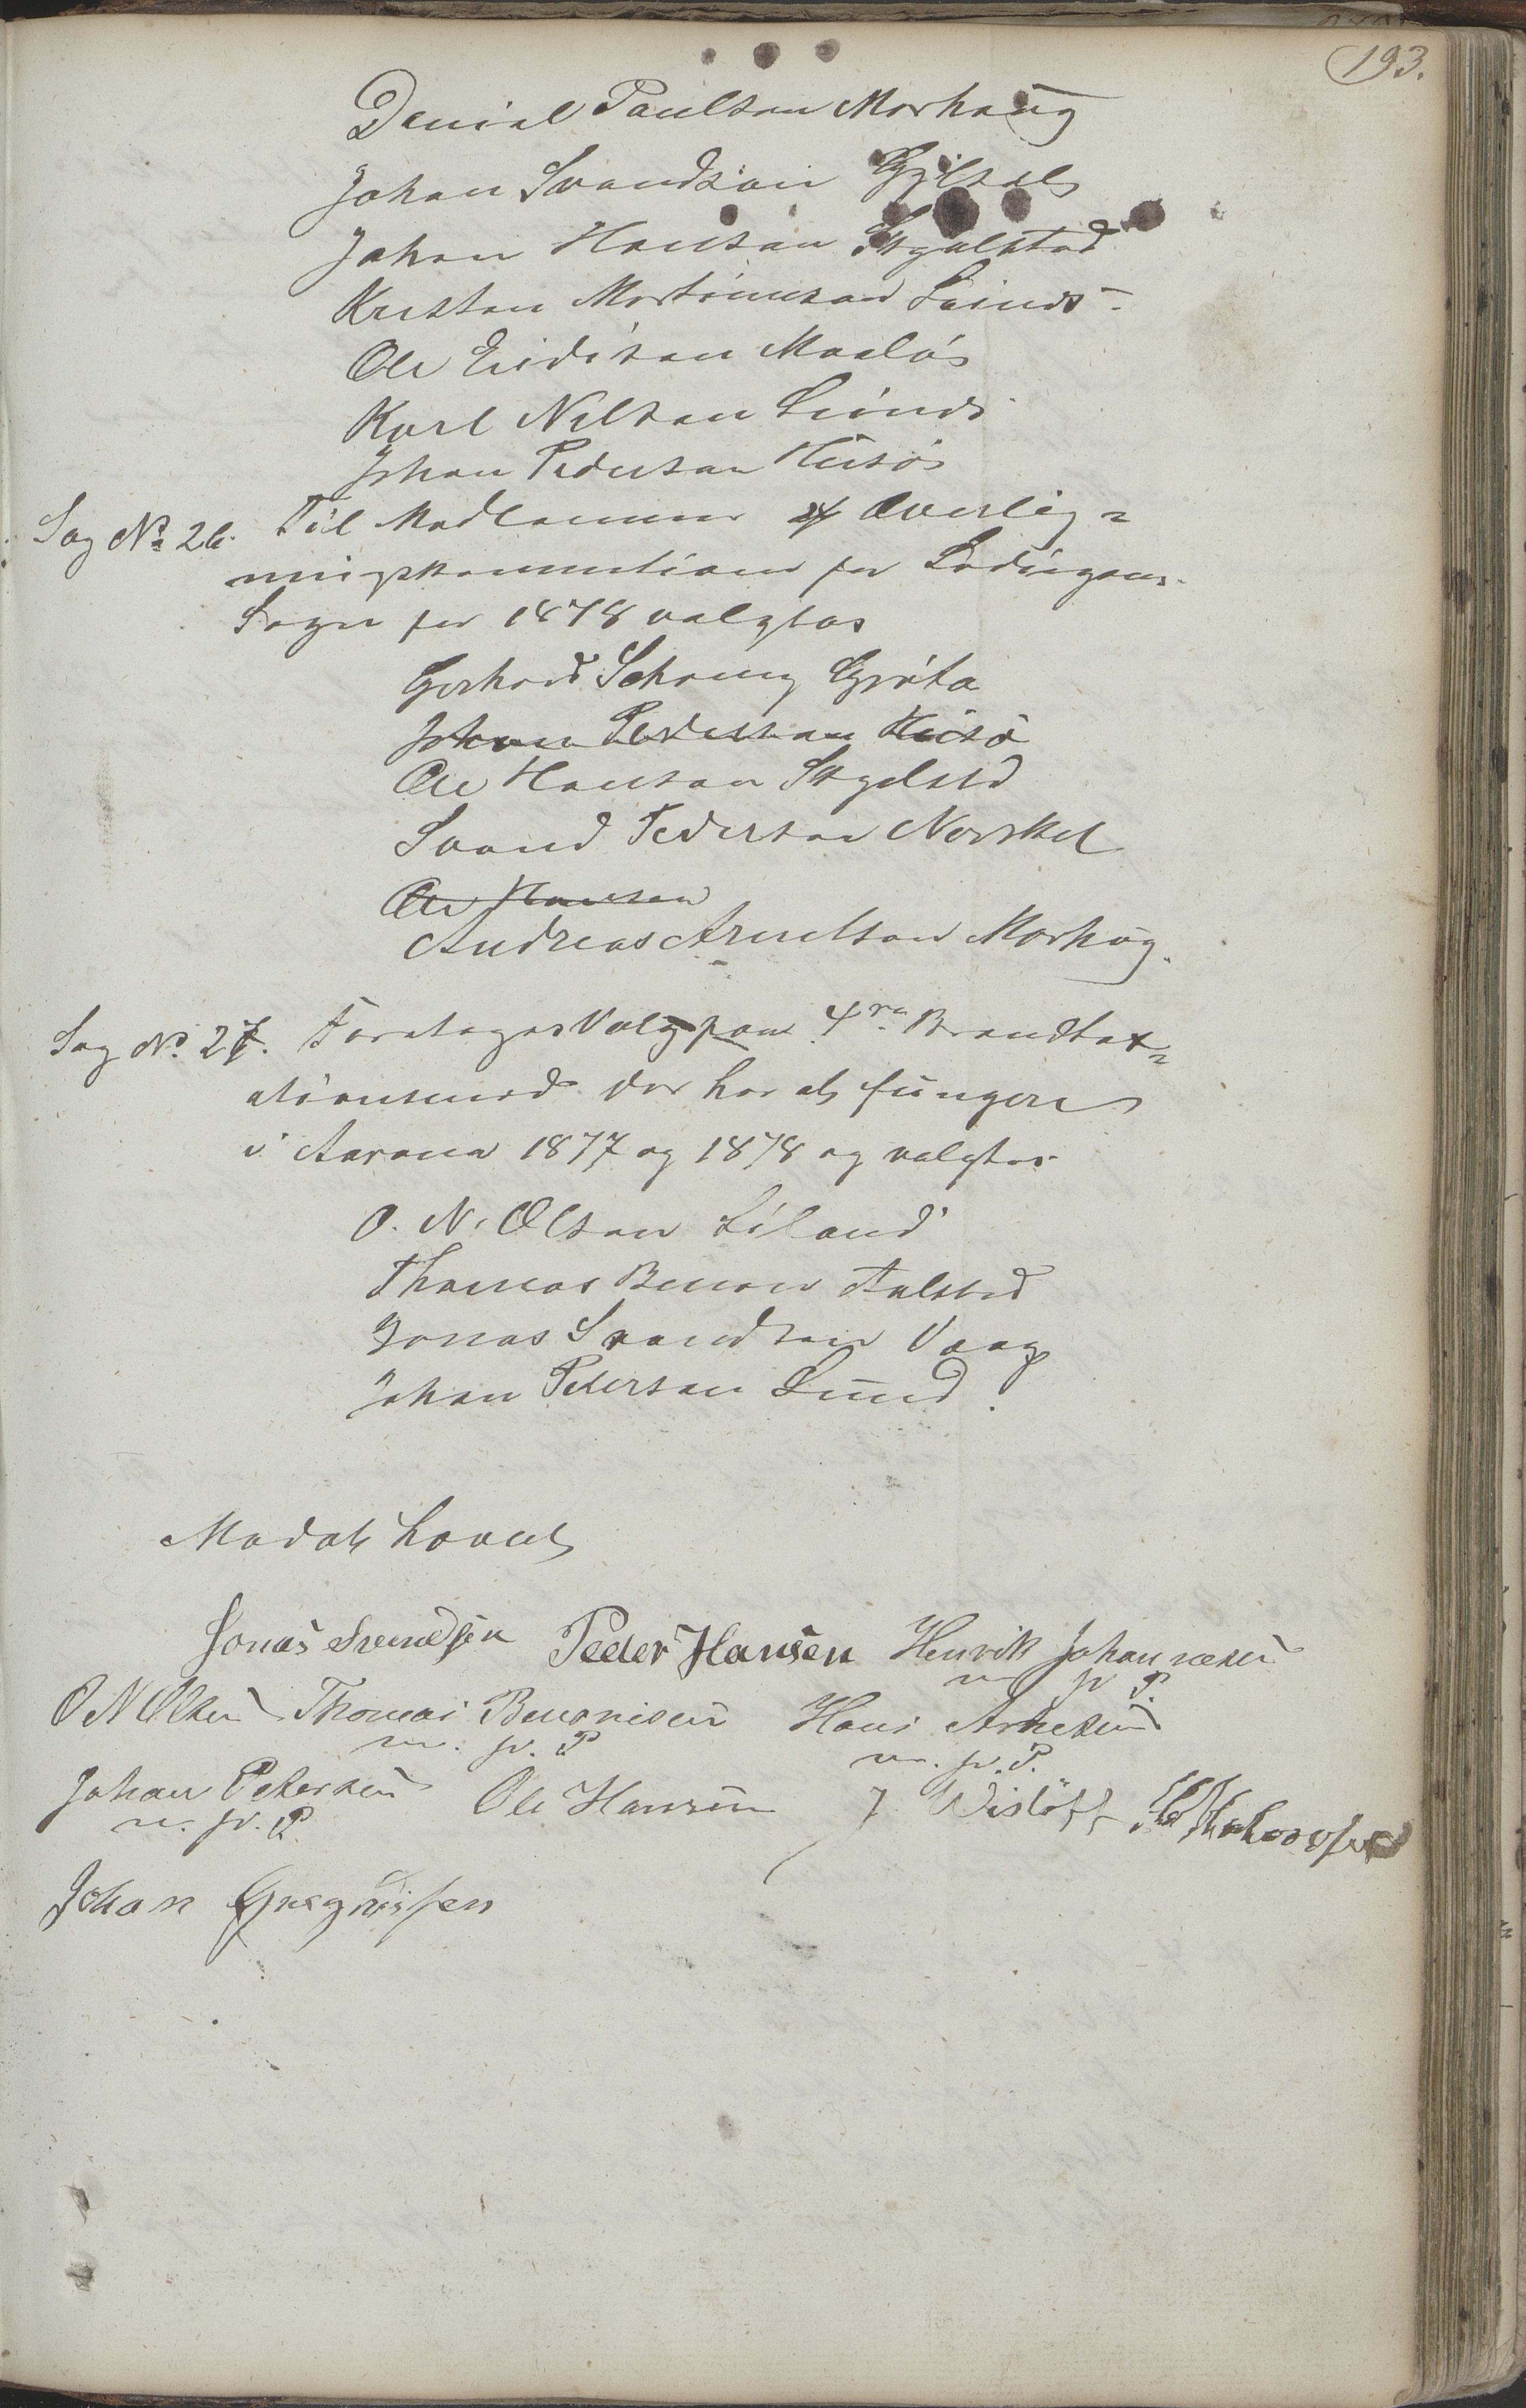 193.
Daniel Paulsen Morhaug
Johan Svendsen
Johan Hansen Skjelstad
Kristen Mortinusen Lund
Ole Erichsen Maaløs
Karl Nilsen Lund
Johan Pedersen Husø
Sag No 26. Til Medlemmer af Overlig=
ningskommitionen for Lødingens
Sogn for 1878 valgtes
Gerhard Schøning Grøta
Johan Pedersen Husø
Ole Hansen Skjelsted
Svend Pedersen Norskot
Ole Hansen
Andreas Arentsen Morhøg.
Sag No. 27. Foretages Valg paa 4re Brandtax=
ationsmænd der har at fungere
i Aarene 1877 og 1878 og valgtes
O. N. Olsen Liland
Thomas Benon Aalsted
Jonas Svendsen Vaag
Johan Petersen Lund.
Mødet hævet
Jonas Svendsen Peder Hansen Henrik Johannesen
m p P.
O N Olsen Thomas Benonisen Hans Arnesen
m. p. P m. p. P.
Johan Petersen Ole Hansen J Wisløff
m. p. P.
Johan Gregussen